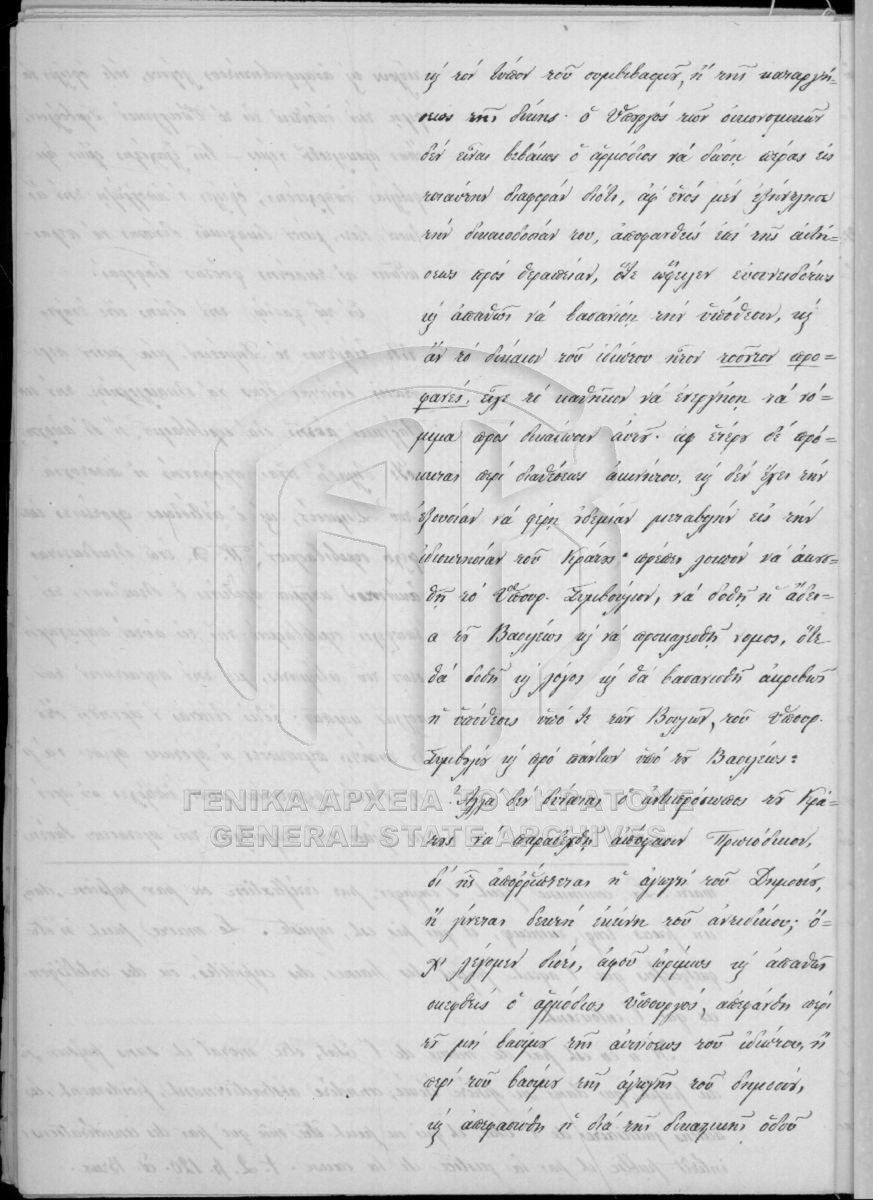 κ τὸν τύπον τοῦ συμβιβασμοῦ, ἢ τῆς καταργή-
σεως τῆς δίκης. ὁ Ὑπουργὸς τῶν οἰκονομικῶν
δὲν εἶναι βεβαίως ὁ ἁρμόδιος νὰ δώσῃ πέρας εἰς
τοιαύτην διαφορὰν διότι, ἀφ' ἑνὸς μὲν ἐξήντλησε
τὴν δικαιοδοσίαν του, ἀποφανθεὶς ἐπὶ τῆς αἰτή-
σεως πρὸς θεραπείαν, ὅτε ὤφειλεν εὐσυνειδότως
κ ἀπαθῶς νὰ βασανίσῃ τὴν ὑπόθεσιν, κ
ἂν τὸ δίκαιον τοῦ ἰδιώτου ἦτον τοσοῦτον προ-
φανές, εἶχε τὸ καθῆκον νὰ ἐνεργήσῃ τὰ νό-
μιμα πρὸς δικαίωσιν αὐτοῦ. ἀφ' ἑτέρου δὲ πρό-
κειται περὶ διαθέσεως ἀκινήτου, κ δὲν ἔχει τὴν
ἐξουσίαν νὰ φέρῃ οὐδεμίαν μεταβολὴν εἰς τὴν
ἰδιοκτησίαν τοῦ Κράτους· πρέπει λοιπὸν νὰ ἀκου-
σθῇ τὸ Ὑπουρ. Συμβούλιον, νὰ δοθῇ ἡ ἄδει-
α τοῦ Βασιλέως κ νὰ προκληθῇ νόμος, ὅτε
θὰ δοθῇ κ λόγος κ θὰ βασανισθῇ ἀκριβῶς
ἡ ὑπόθεσις ὑπό τε τῶν Βουλῶν, τοῦ Ὑπουρ.
Συμβουλίου κ πρὸ πάντων ὑπὸ τοῦ Βασιλέως:
Ἀλλὰ δὲν δύναται ὁ ἀντιπρόσωπος τοῦ Κρά-
τους νὰ παραδεχθῇ ἀπόφασιν Πρωτόδικον,
δι' ἧς ἀπορρίπτεται ἡ ἀγωγὴ τοῦ Δημοσίου,
ἢ γίνεται δεκτὴ ἐκείνη τοῦ ἀντιδίκου; ὄ-
χι λέγομεν διότι, ἀφοῦ ὡρίμως κ ἀπαθῶς
σκεφθεὶς ὁ ἁρμόδιος Ὑπουργός, ἀπεφάνθη περὶ
τοῦ μὴ βασίμου τῆς αἰτήσεως τοῦ ἰδιώτου, ἢ
περὶ τοῦ βασίμου τῆς ἀγωγῆς τοῦ δημοσίου,
κ ἀπεφασίσθη ἡ διὰ τῆς δικαστικῆς ὁδοῦ
ΓΕΝΙΚΑ ΑΡΧΕΙΑ ΤΟΥ ΚΡΑΤΟΥΣ
GENERAL STATE ARCHIVES